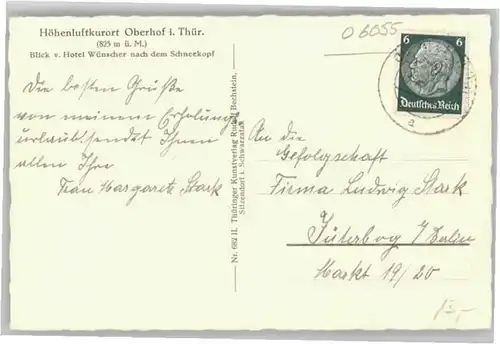 Höhenluftkurort Oberhof i. Thür.
(825 m ü. M.)
Blick v. Hotel Wünscher nach dem Schneekopf
O 6055
6 6
Deutsches Reich
a
Die besten Grüße
von meinem Erholungs
urlaub sendet Ihnen
allen Ihre
Frau Margarete Stark
Nr. 682 H. Thüringer Kunstverlag Rudolf Bechstein,
Sitzendorf i. Schwarzatal
An die
Gefolgschaft
Firma Ludwig Stark
Jüterbog / Berlin
Markt 19/20